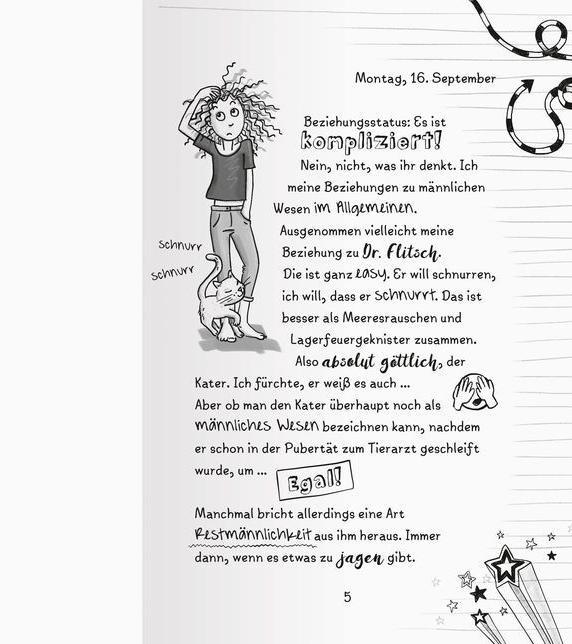 Montag, 16. September
Beziehungsstatus: Es ist
kompliziert!
Nein, nicht, was ihr denkt. Ich
meine Beziehungen zu männlichen
Wesen im Allgemeinen.
Ausgenommen vielleicht meine
Beziehung zu Dr. Flitsch.
Die ist ganz easy. Er will schnurren,
ich will, dass er schnurrt. Das ist
besser als Meeresrauschen und
Lagerfeuergeknister zusammen.
Also absolut göttlich, der
Kater. Ich fürchte, er weiß es auch ...
Aber ob man den Kater überhaupt noch als
männliches Wesen bezeichnen kann, nachdem
er schon in der Pubertät zum Tierarzt geschleift
wurde, um ...
Egal!
Manchmal bricht allerdings eine Art
Restmännlichkeit aus ihm heraus. Immer
dann, wenn es etwas zu jagen gibt.
schnurr
schnurr
5